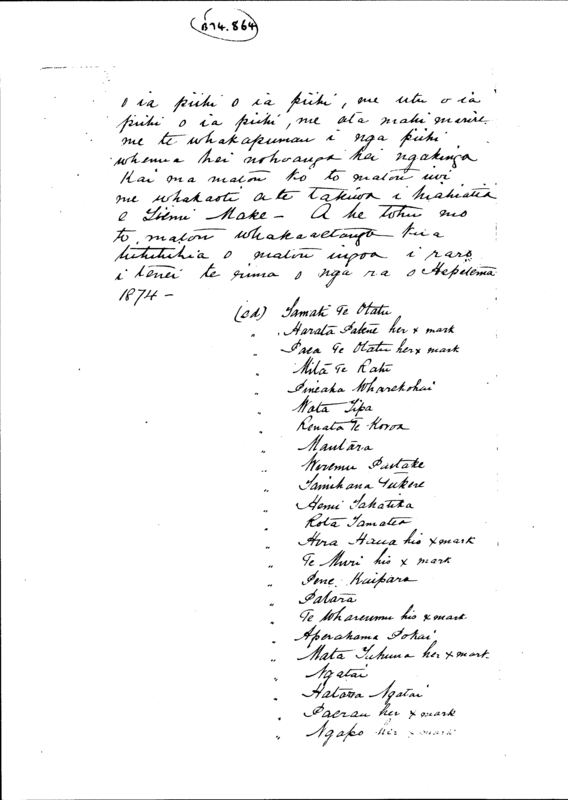 B74.864
o ia piihi o ia piihi, me utu o ia
piihi o ia piihi, me ata mahi marire
me te whakapumau i nga piihi
whenua hei nohoanga hei ngakinga
Kai ma matou ko to matou iwi
me whakaoti ai te takiwa i hiahiatia
e Tiemi Make - A he tohu mo
to matou whakaaetanga kia
tuhituhia o matou ingoa i raro
i tenei te rima o nga ra o Hepetema
1874 -
(sd) Tamati Te Otatu
" Harata Patene her x mark
" Paea Te Otatu her x mark
" Mita Te Ratu
" Pineaha Wharekohai
" Wata Tipa
" Renata Te Koroa
" Mautara
" Weremu Pustake
" Tamihana Tukere
" Hemi Takatika
" Rota Tamatea
" Hera Haua his x mark
" Te Muri his x mark
" Pene Kaipara
" Patara
" Te Wharerumu his x mark
" Aperahama Pokai
" Mata Tukuna her x mark
" Ngatai
" Hataraa Ngatai
" Paerau her x mark
" Ngapo her x mark